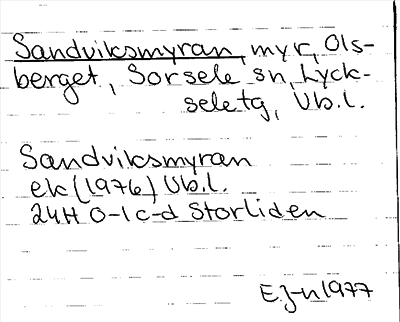 Sandviksmyran, myr, Ols-
berget, Sorsele sn, Lyck-
seletg, Vb.l.
Sandviksmyran
ek (1976) Vb.l.
24H 0-1 c-d Storliden
E.J-n 1977